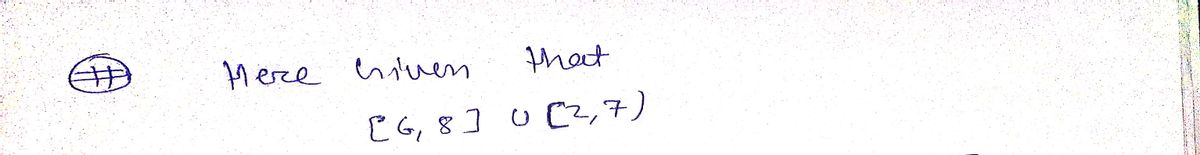 Here Given that
[6, 8] ∪ [2,7)